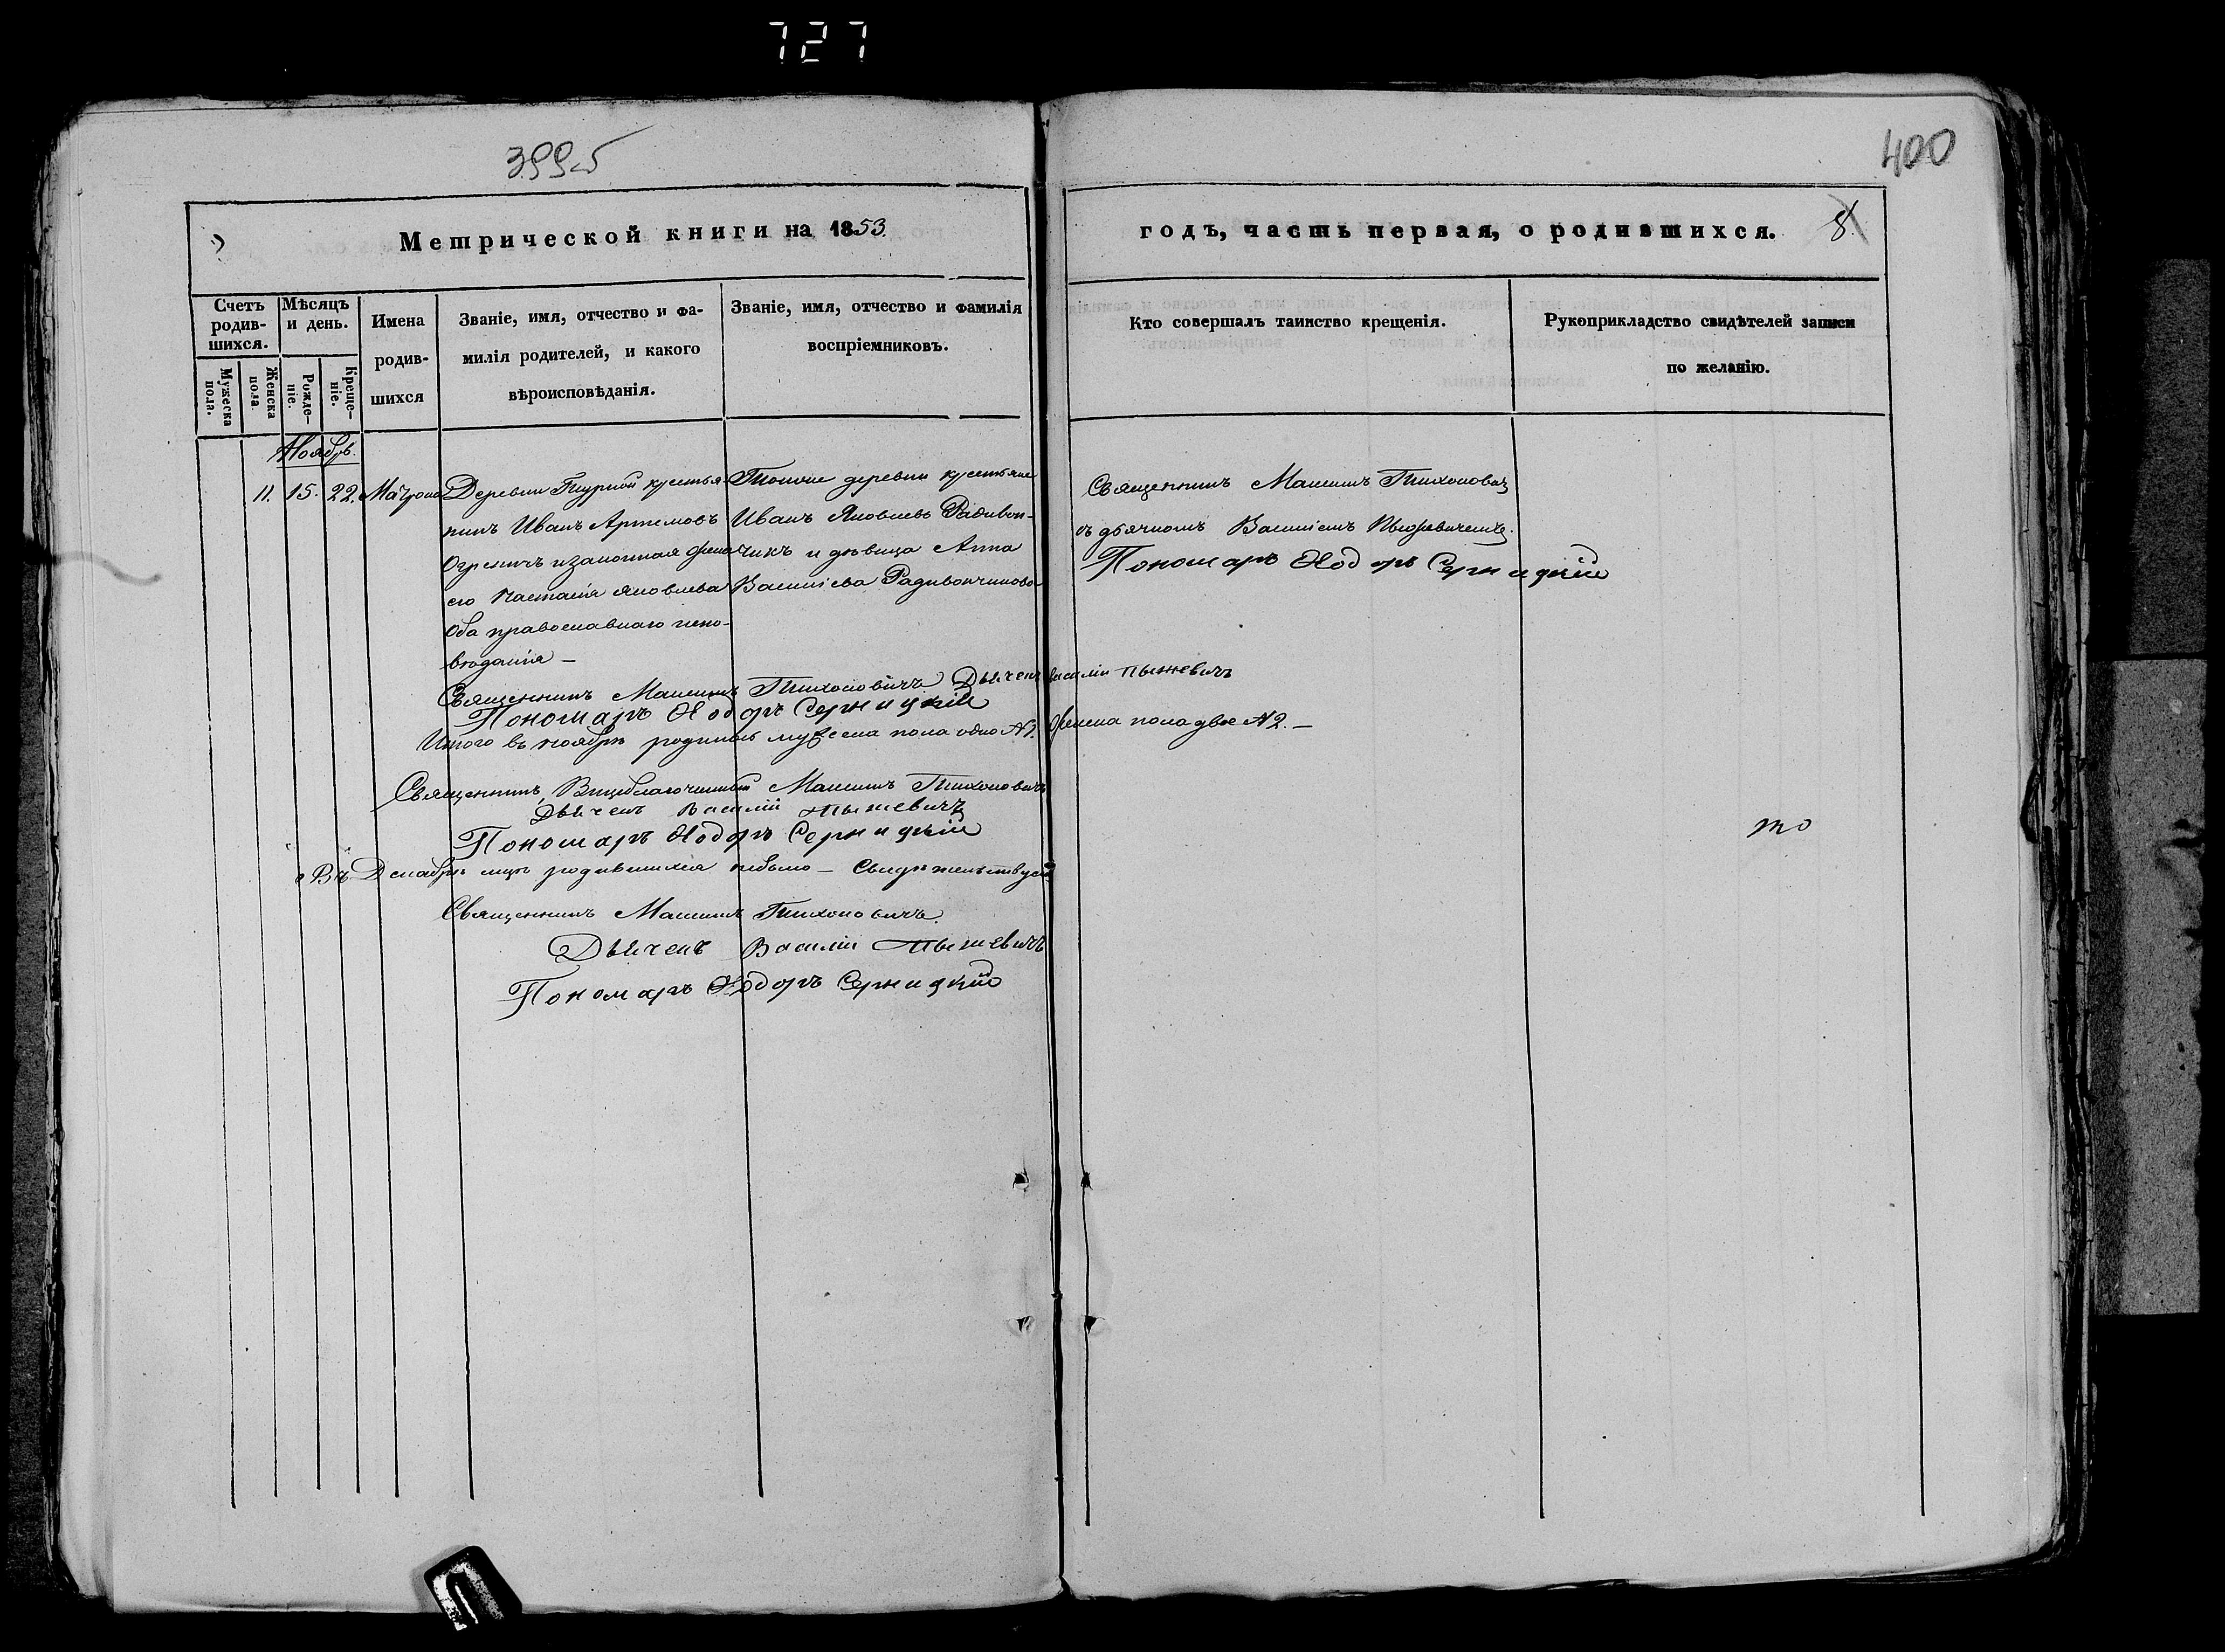 727
399б
400
Метрической книги на 1853.
годъ, часть первая, о родившихся.
8
Счетъ родив-шихся.
Мѣсяцъ и день.
Имена родив-шихся
Званіе, имя, отчество и фа-
милія родителей, и какого
вѣроисповѣданія.
Званіе, имя, отчество и фамилія
воспріемниковъ.
Кто совершалъ таинство крещенія.
Рукоприкладство свидѣтелей записи
по желанію.
Мужеска пола.
Женска пола.
Рожде-ніе.
Креще-ніе.
Ноябрь.
11. 15. 22. Матрона
Деревни крестья-
нинъ Иванъ Артемовъ
и законная жена
его Настасія Яковлева
Оба православнаго испо-
вѣданія —
Тойже деревни крестьяне
Иванъ Яковлевъ Радивон-
чикъ и дѣвица Анна
Василіева Радивончикова
Священникъ Максимъ Тихоновичъ
съ дьячкомъ Василіемъ
Пономаръ Ѳодоръ Серницкій
Священникъ Максимъ Тихоновичъ Дьячекъ Василій Пыжевичъ
Пономаръ Ѳодоръ Серницкій
Итого въ ноябрѣ родилось мужеска пола одно №1. женска пола двое №2. —
Священникъ, Вицеблагочинный Максимъ Тихоновичъ
Дьячекъ Василій Пыжевичъ
Пономаръ Ѳодоръ Серницкій
то
Въ Декабрѣ мцѣ родившихся небыло —
Священникъ Максимъ Тихоновичъ.
Дьячекъ Василій Пыжевичъ
Пономаръ Ѳодоръ Серницкій